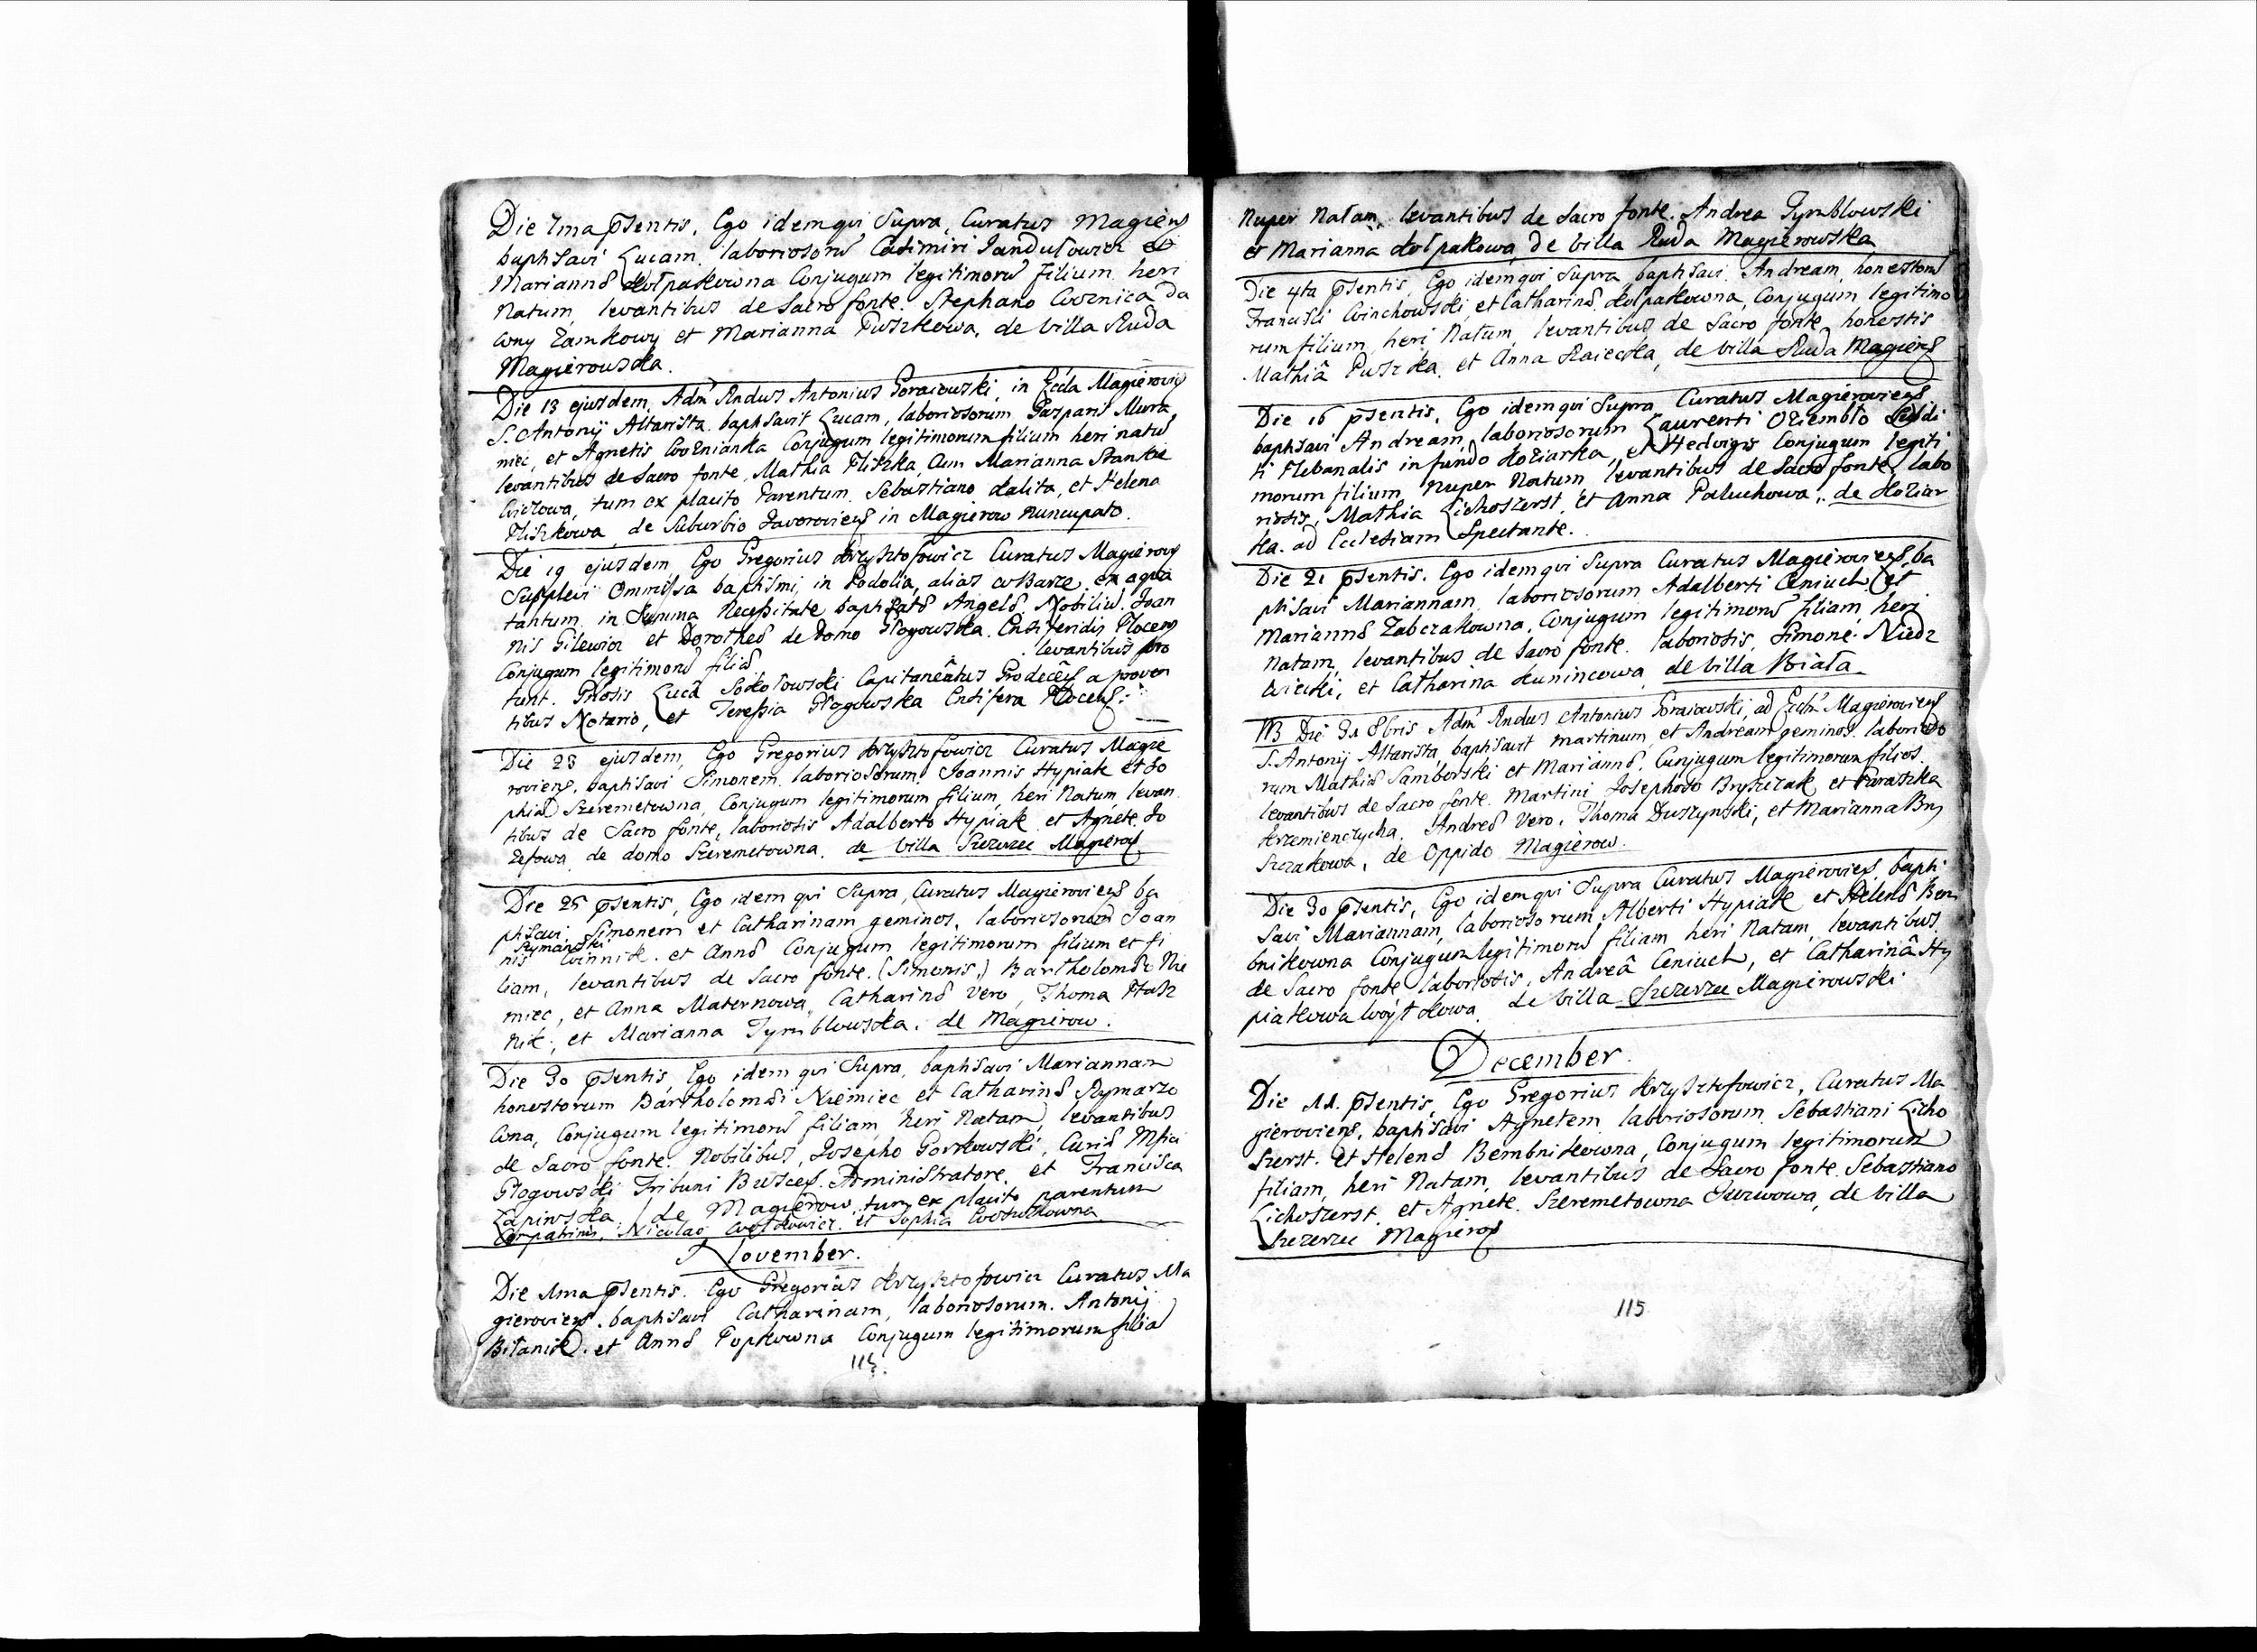 Die 7ma psentis, Ego idem qui Supra, Curatus Magierẽs
baptisavi Lucam, laboriosorũ Casimiri Jandułowicz et
Mariannæ Kołpakowna Conjugum legitimorũ filium heri
Natum, levantibus de Sacro fonte. Stephano Woznica Da
wny Zamkowy et Marianna Puszkowa. de Villa Ruda
Magierowska.
Die 13 ejusdem, Adm Rndus Antonius Goraiowski, in Eccla Magierovi
S. Antonij Altarista baptisavit Lucam, laboriosorum Gasparis Mura
niec, et Agnetis Woznianka Conjugum legitimorum filium heri natũ
levantibus de Sacro fonte Mathia Pliszka, Cum Marianna Stankie
wiczowa, tum ex placito Parentum. Sebastiano Kalita, et Helena
Pliszkowa de Suburbio Javorovieñ in Magierow nuncupato.
Die 19 ejusdem, Ego Gregorius Krzysztofowicz Curatus Magierov
Supplevi Omissa baptismi, in Podolia, alias w Barze, ex aqua
tantum in Summa Necessitate baptisatæ Angelæ, Nobiliũ Joan
nis Gilewicz et Dorotheæ de Domo Głogowska. Ensiferidis Plocens
Conjugum legitimorũ filiæ levantibus pro
tunt. Gñosis Lucâ Sokołowski Capitaneâtus Grodecẽs a proven
tibus Notario, et Teressia Głogowska Ensifera Plocens:
Die 23 ejusdem, Ego Gregorius Krzysztofowicz Curatus Magie
roviens, baptisavi Simonem laboriosorum Joannis Hypiak et So
phiæ Szeremetowna, Conjugum legitimorum filium, heri Natum, levan
tibus de Sacro fonte, laboriosis Adalberto Hypiak et Agnete Jo
zefowa de domo Szeremetowna. de Villa Szczerzec Magierov
Die 25 psentis, Ego idem qui Supra, Curatus Magieroviens ba
ptisavi Simonem et Catharinam geminos, laboriosorum Joan
Rymarski
nis Winnik. et Annæ Conjugum legitimorum filium et fi
liam, levantibus de Sacro fonte. (Simonis,) Bartholomæo Nie
miec, et Anna Maternowa, Catharinæ Vero, Thoma Ptasz
nik, et Marianna Tymblowska. de Magierow.
Die 30 psentis, Ego idem qui Supra, baptisavi Mariannam
honestorum Bartholomæi Niemiec et Catharinæ Rymarzo
wna, Conjugum legitimorũ filiam heri Natam, levantibus
de Sacro fonte. Nobilibus, Josepho Gorkowski, Curiæ Mfici
Głogowski Tribuni Buscẽs. Administratore, et Francisca
Łapinska. de Magierow, tum ex placito parentum
Compatrinis, Nicolao Wołkowicz. et Sophia
November.
Die 1ma psentis. Ego Gregorius Krzysztofowicz Curatus Ma
gieroviens. baptisavi Catharinam, laboriosorum. Antonij
Bilanik. et Annæ Popkowna Conjugum legitimorum filiã
Nuper Natam levantibus de Sacro fonte. Andrea Tymblowski
et Marianna Kołpakowa de Villa Ruda Magierowska
Die 4ta psentis, Ego idem qui Supra, baptisavi Andream, honestorũ
Francisci Winchowski, et Catharinæ Kołpakowna, Conjugum legitimo
rum filium, heri Natum, levantibus de Sacro fonte, honestis
Mathiâ Puszka. et Anna Raiecka, de Villa Ruda Magiers
Die 16 psentis, Ego idem qui Supra Curatus Magierowiens
baptisavi Andream, laboriosorum Laurenti Oziembło Subdi
ti Plebanalis in fundo Koziarka, et Hedvigis Conjugum legiti
morum filium, nuper Natum levantibus de Sacro fonte, labo
riosis, Mathia Lichoszerst, et Anna Paluchowa. de Koziar
ka. ad Ecclesiam Spectante.
Die 21 psentis. Ego idem qui Supra Curatus Magierowiens, ba
ptisavi Mariannam, laboriosorum Adalberti Ceniuch, et
Mariannæ Zabczakowna, Conjugum legitimorũ filiam, heri
Natam, levantibus de Sacro fonte. laboriosis, Simone. Niedz
wiecki, et Catharina Kunincowa, de Villa Biała.
NB Die 31 8bris Adm Rndus Antonius Goraiowski, ad Eccłm Magieroviens
S. Antonij Altarista, baptisavit Martinum et Andream geminos, laborioso
rum Mathiæ Samborski et Mariannæ. Conjugum legitimorum filios.
levantibus de Sacro fonte. Martini Josephoto Bryszczak et Paraszka
Krzemienczycha. Andreæ Vero. Thoma Duszynski, et Marianna Bry
szczakowa, de Oppido Magierow.
Die 30 psentis, Ego idem qui Supra Curatus Magieroviens, bapti
savi Mariannam, laboriosorum Alberti Hypiak et Helenæ Bem
bnikowna Conjugum legitimorũ filiam heri Natam, levantibus
de Sacro fonte laboriosis, Andreâ Ceniuch, et Catharinâ Hy
piakowa Wóytkowa. de Villa Szczerzec Magierowski
December.
Die 11. psentis, Ego Gregorius Krzysztofowicz, Curatus Ma
gieroviens, baptisavi Agnetem laboriosorum Sebastiani Licho
szerst. et Helenæ Bembnikowna, Conjugum legitimorum
filiam, heri Natam, levantibus de Sacro fonte Sebastiano
Lichoszerst, et Agnete Szeremetowna de Villa
Szczerzec Magierov
115